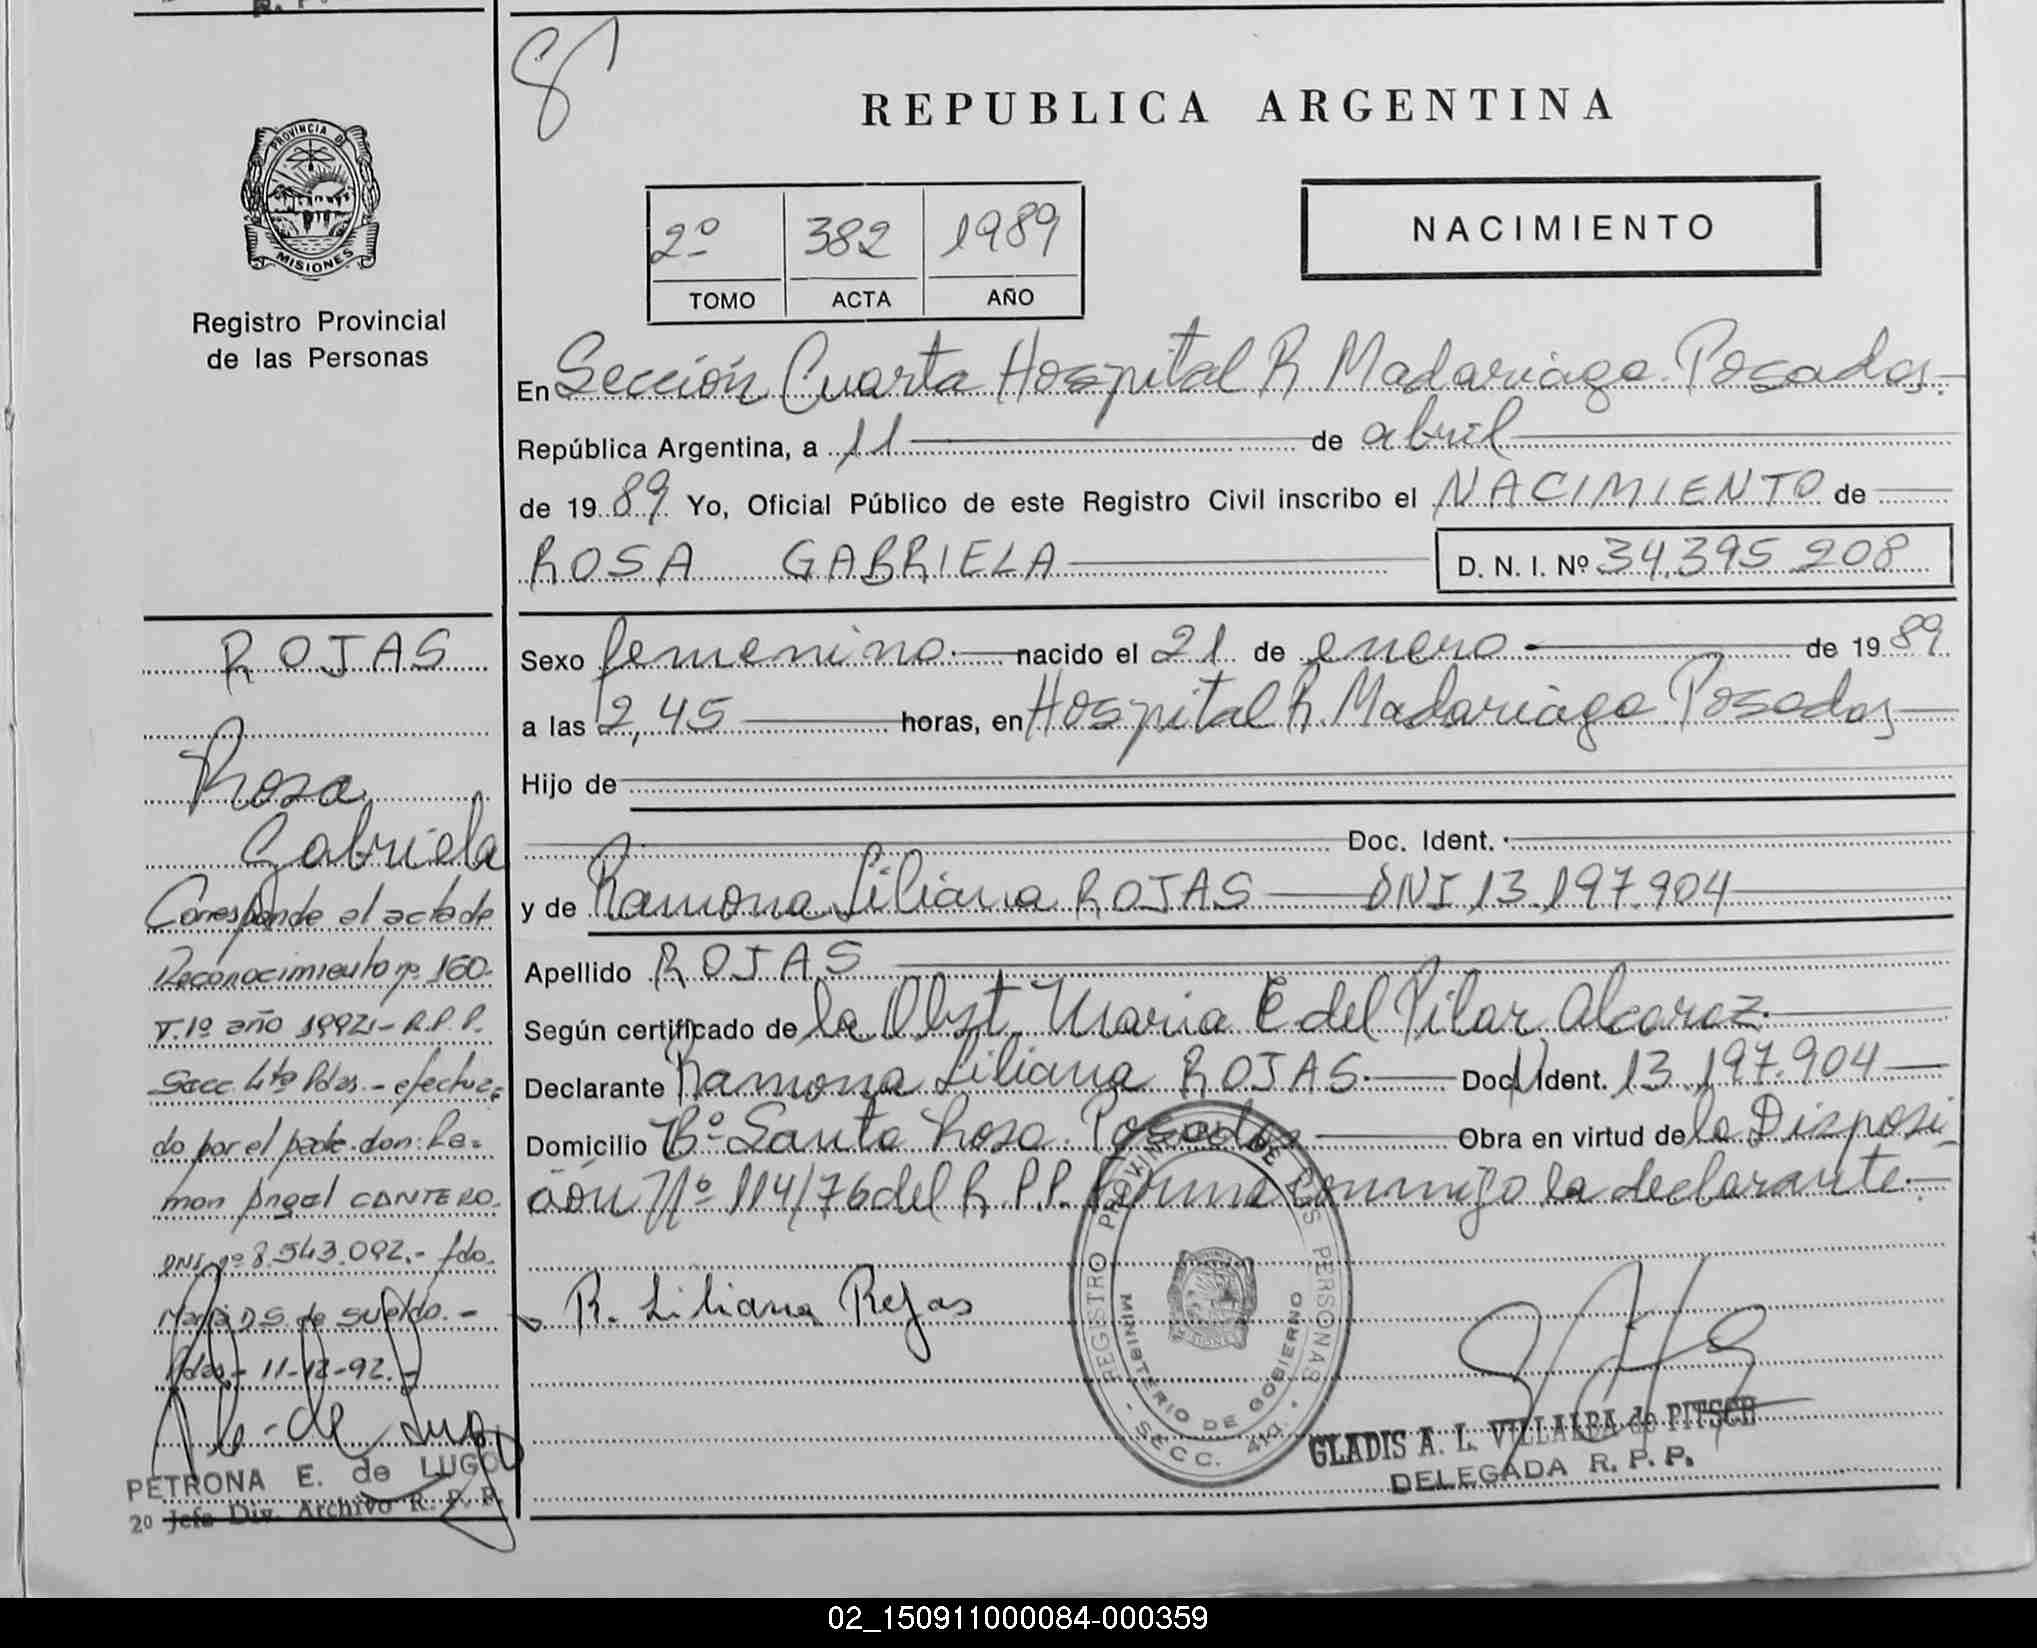 R. P.
8
PROVINCIA DE
MISIONES
Registro Provincial
de las Personas
ROJAS
Rosa
Gabriela
Corresponde al acta de
Reconocimiento nº 160-
T. 1º año 1992.- R.P.P.
Secc 4ta Pdas.- efectua-
do por el padre don: Ra-
mon Angel CANTERO.
DNI nº 8.543.092.- fdo.
Maria D.S. de Sueldo.-
Pdas.- 11-12-92.-
de Lugo
PETRONA E. de LUGO
2º Jefa Div. Archivo R. P. P.
REPUBLICA ARGENTINA
2º 382 1989
TOMO ACTA AÑO
NACIMIENTO
En Sección Cuarta Hospital R Madariaga Posadas.
República Argentina, a 11 de abril
de 1989 Yo, Oficial Público de este Registro Civil inscribo el NACIMIENTO de
ROSA GABRIELA D. N. I. Nº 34.395 208
Sexo femenino. nacido el 21 de enero de 1989
a las 2,45 horas, en Hospital R. Madariaga Posadas
Hijo de
Doc. Ident.
y de Ramona Liliana ROJAS DNI 13.197.904
Apellido ROJAS
Según certificado de la Obst. Maria E del Pilar Alcaraz.
Declarante Ramona Liliana ROJAS. Doc. Ident. 13.197.904
Domicilio Bº Santa Rosa. Posadas Obra en virtud de la Disposi
ción Nº 114/76 del R.P.P. Firma conmigo la declarante.
R. Liliana Rojas
REGISTRO PROVINCIAL DE LAS PERSONAS
MINISTERIO DE GOBIERNO
- SECC. 4ta. -
GLADIS A. L. VILLALBA de PITSCH
DELEGADA R. P. P.
02_150911000084-000359